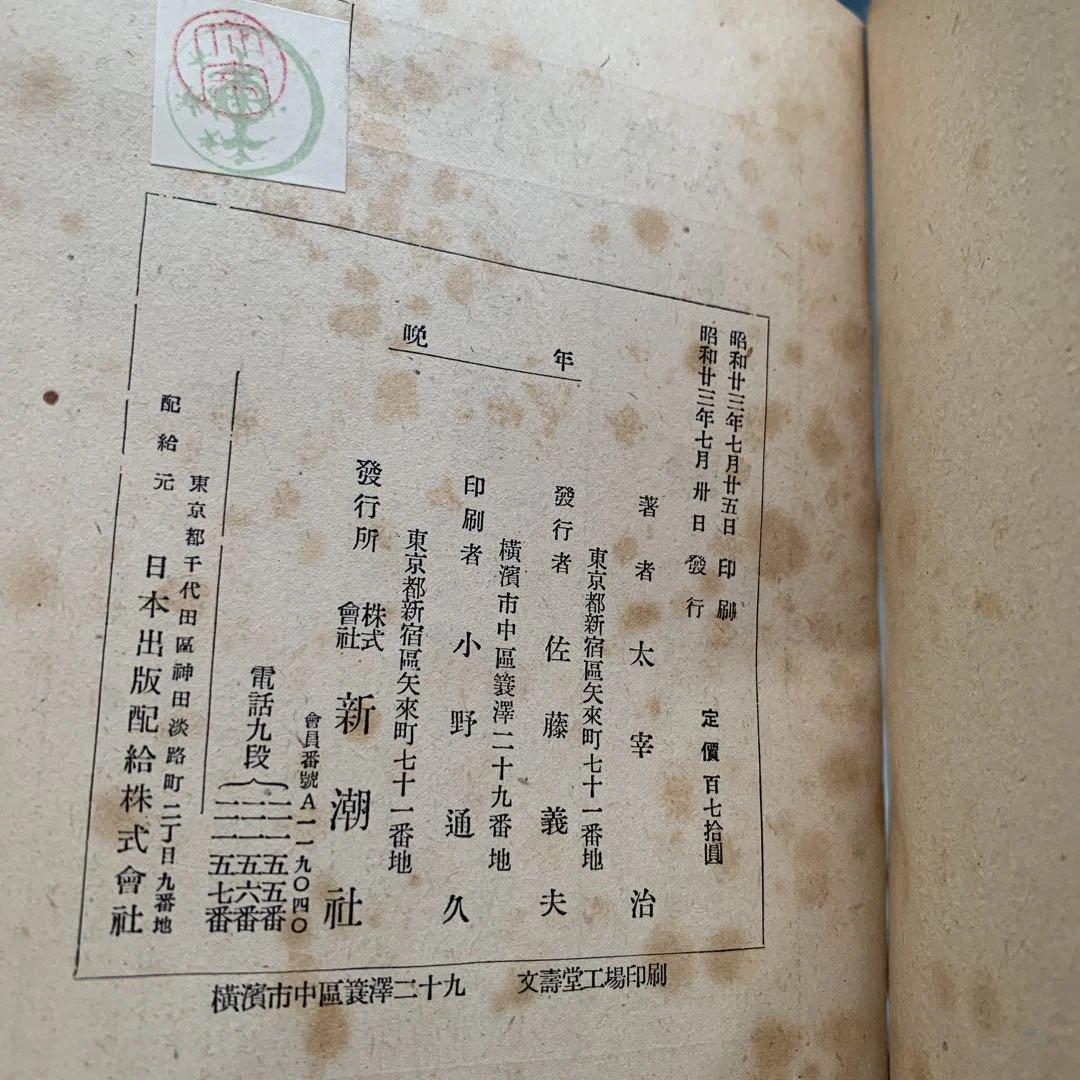 昭和廿三年七月廿五日 印刷
昭和廿三年七月卅日 發行
定價 百七拾圓
晩年
著者 太宰治
東京都新宿區矢來町七十一番地
發行者 佐藤義夫
橫濱市中區簑澤二十九番地
印刷者 小野通久
東京都新宿區矢來町七十一番地
發行所 株式會社 新潮社
會員番號A一一九〇四〇
電話九段
二一一五五番
二一一五六番
二一一五七番
東京都千代田區神田淡路町二丁目九番地
配給元 日本出版配給株式會社
橫濱市中區簑澤二十九 文壽堂工場印刷